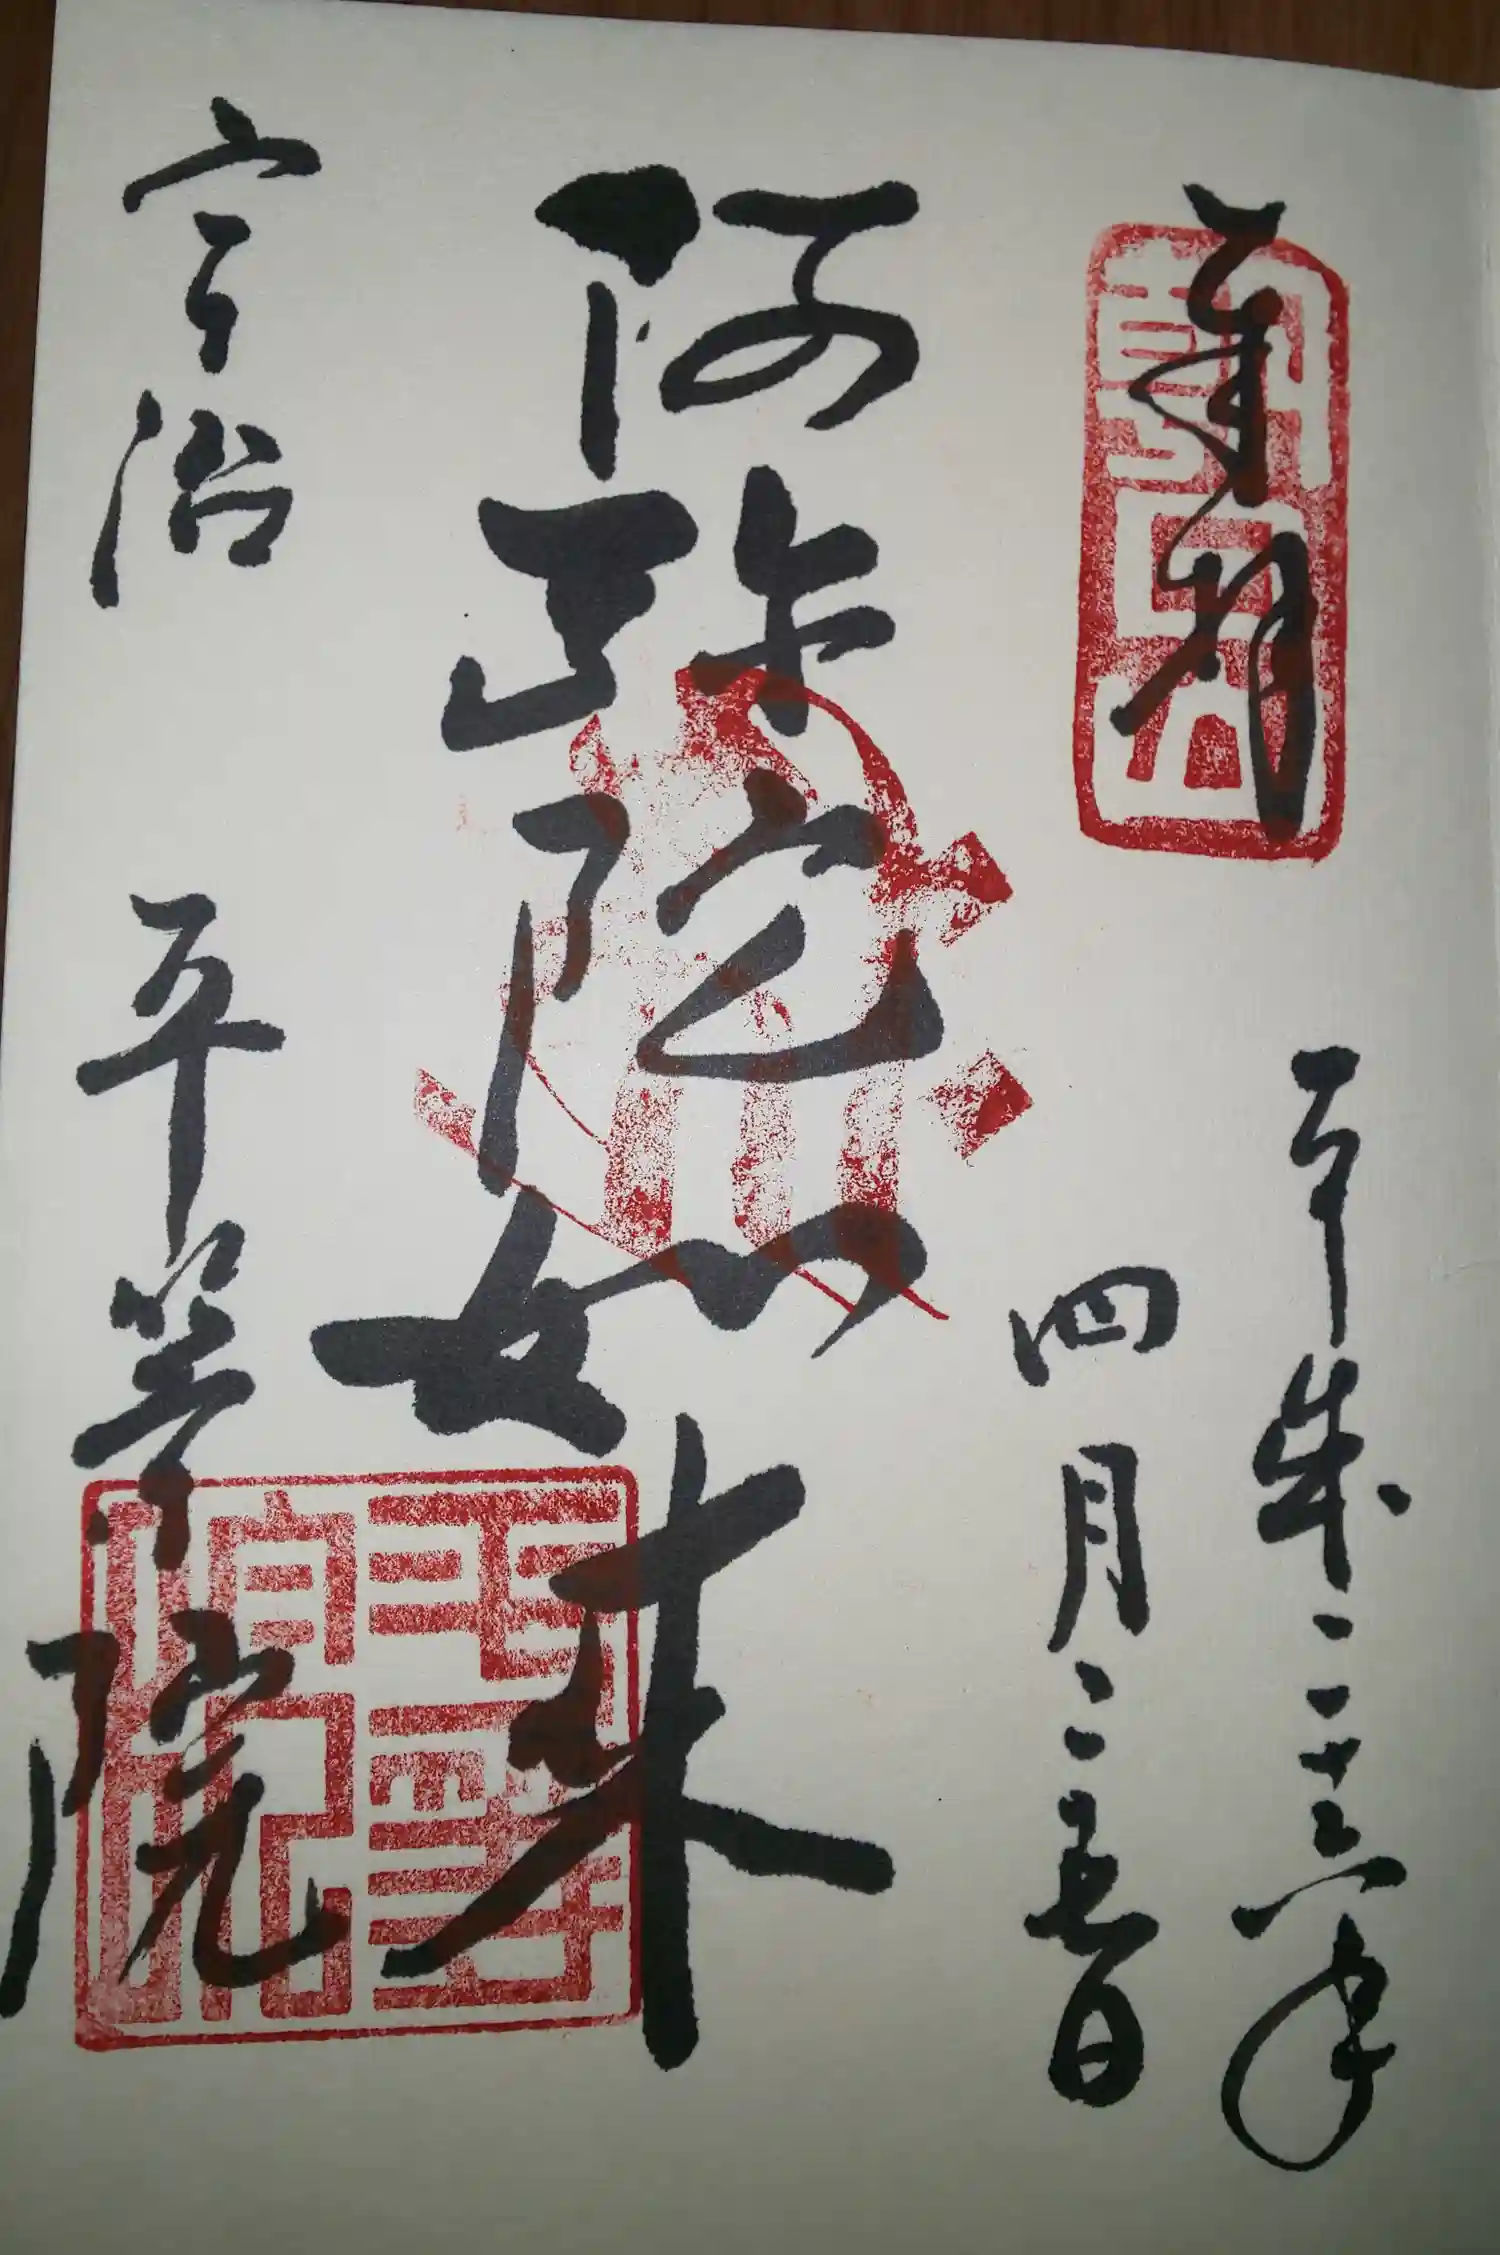 奉拝
朝日山
平成二十六年
四月二十五日
阿弥陀如来
宇治 平等院
平等院印